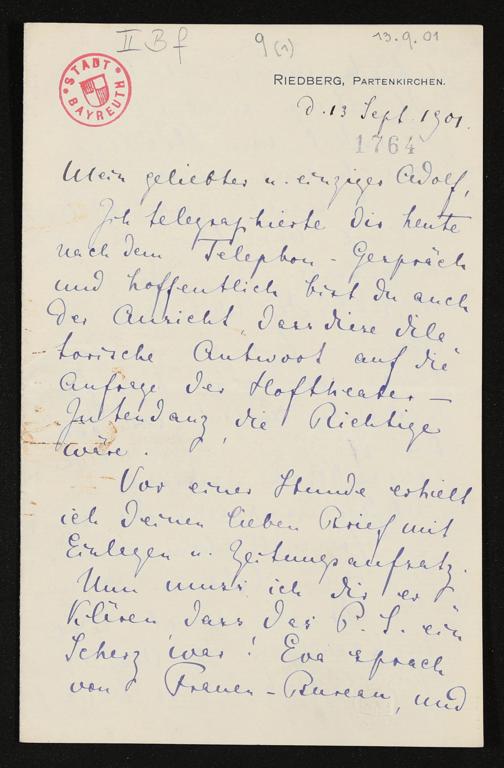 II B f 9 (1) 13.9.01
STADT BAYREUTH
RIEDBERG, PARTENKIRCHEN.
d. 13 Sept. 1901.
1764
Mein geliebter u. einziger Adolf,
Ich telegraphierte dir heute
nach dem Telephon-Gespräch
und hoffentlich bist du auch
der Ansicht, dass diese dila
torische Antwort auf die
Anfrage der Hoftheater-
Intendanz die Richtige
wäre.
Vor einer Stunde erhielt
ich deinen lieben Brief mit
Einlagen u. Zeitungsaufsatz.
Nun muss ich dir er
klären dass das P. S. ein
Scherz war! Eva sprach
von Frauen-Bureau, und